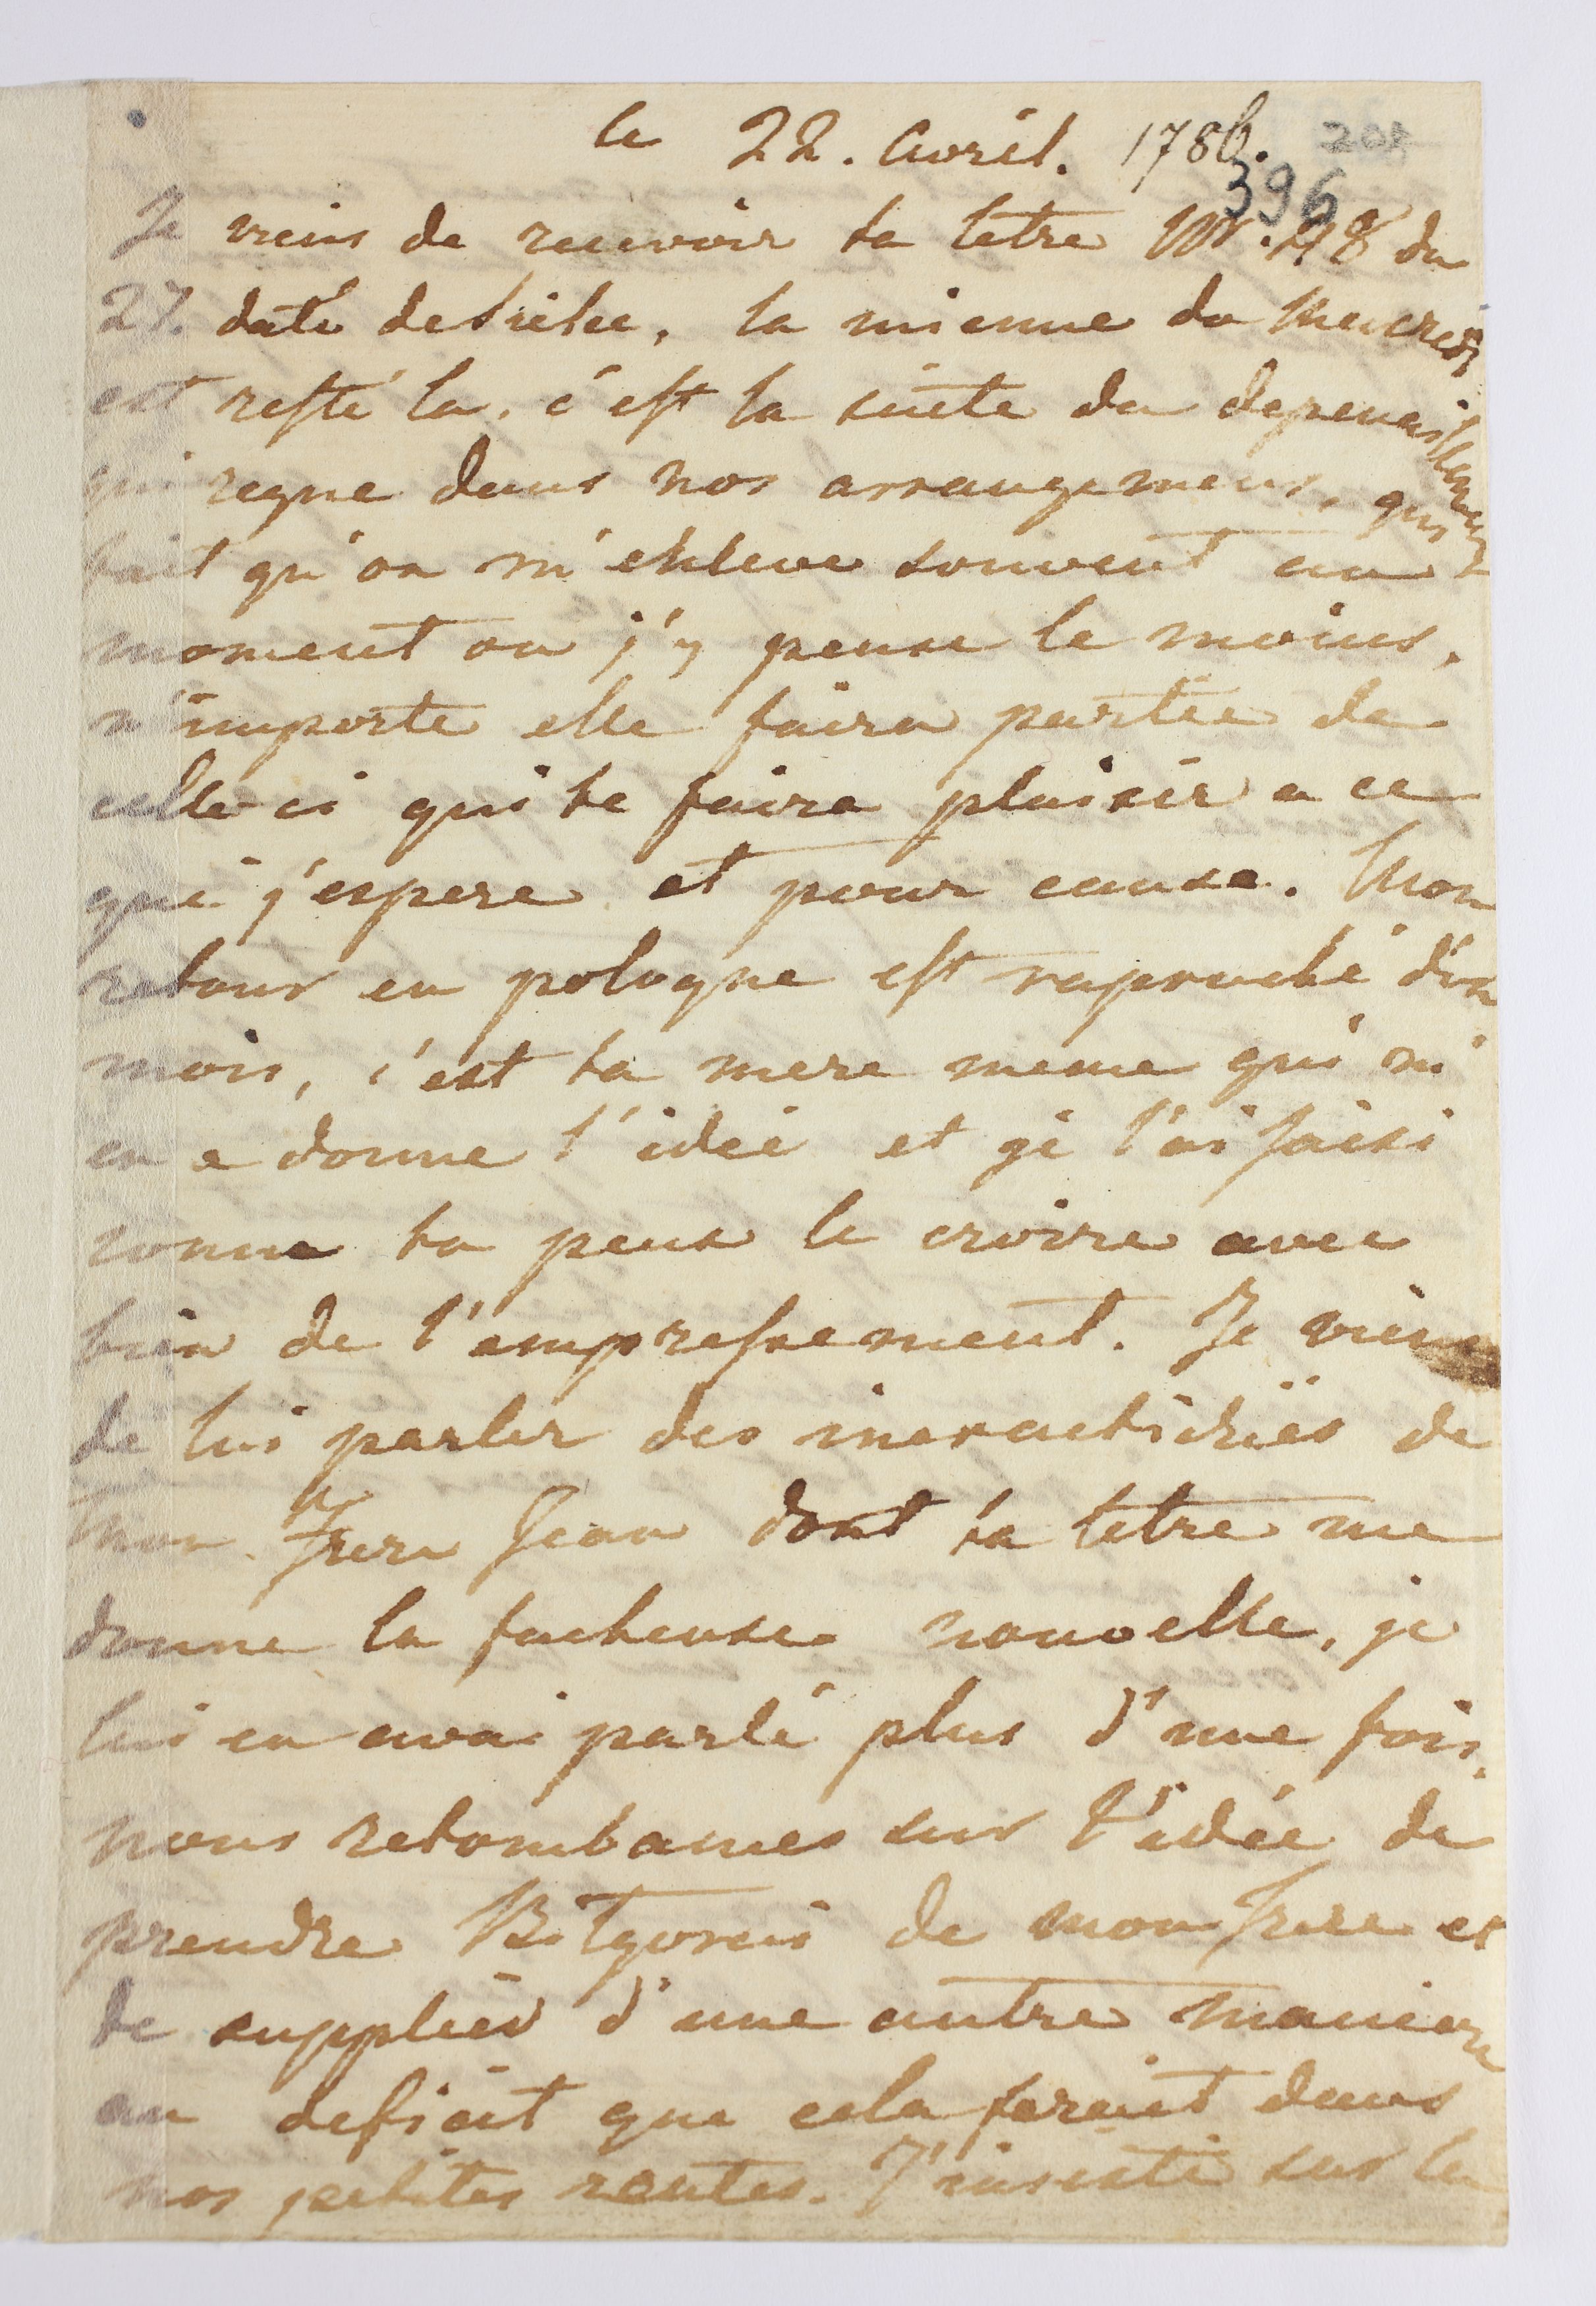 le 22. Avril. 1786. 208
396
Je viens de recevoir ta letre Nr. 48 du
27. daté de la
est resté la. c'est la suite du depenaillement
qui regne dans nos arrangemens, qui
fait qu'on m'enleve souvent au
moment ou j'y pense le moins.
n'importe elle faira partie de
celle ci qui te faira plaisir a ce
que j'espere et pour cause. Mon
retour en pologne est raproché d'un
mois, c'est ta mere meme qui m'
en a donne l'idée et je l'ai saisi
comme tu peux le croire avec
bien de l'empressement. Je viens
de lui parler des inexactidües de
mon Frere Jean dont ta letre me
donne la facheuse nouvelle, je
lui en avai parlé plus d'une fois.
nous retombames sur l'idée de
prendre Bilgorai de mon frere et
de supplier d'une autre maniere
au deficit que cela feroit dans
nos petites rentes. J'insiste sur le